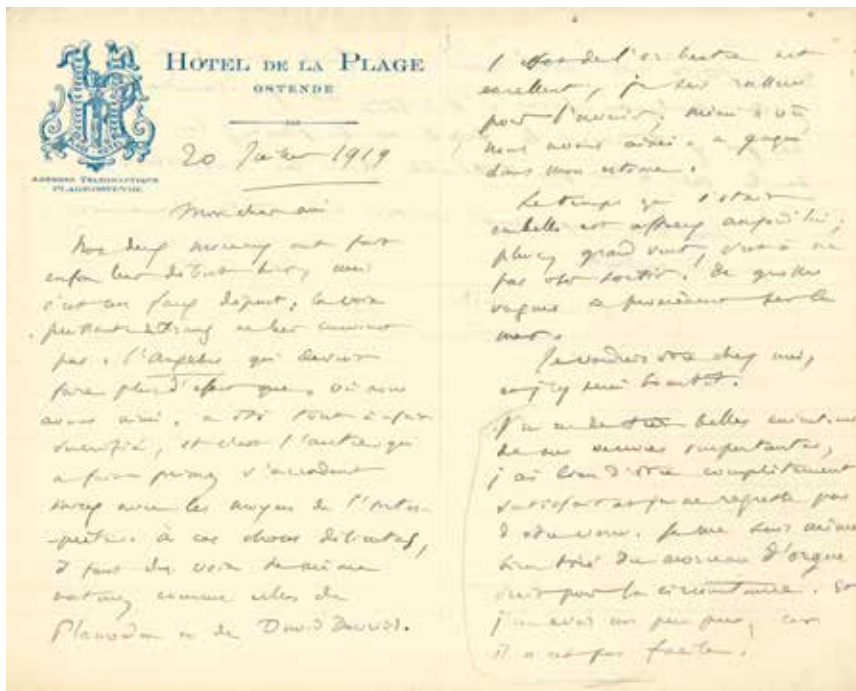 HOTEL DE LA PLAGE
OSTENDE
ADRESSE TÉLÉGRAPHIQUE
PLAGE-OSTENDE
20 Juillet 1919
Mon cher ami
Nos deux morceaux ont fait
enfin leur début hier, mais
c'est un faux départ, la voix
ne leur convient
pas. L'Angelus qui devrait
faire plus d'effet que Où nous
avons aimé, a été tout à fait
sacrifié, et c'est l'autre qui
a s'accordant
mieux avec les moyens de l'inter-
-prète. À ces choses délicates,
il faut des voix de même
nature, comme celles de
Plamondon et de David Devriès.
l'effet de l'orchestre est
excellent, je suis rassuré
pour l'avenir. Même Où
nous avons aimé a gagné
dans mon estime.
Le temps qui s'était
embelli est affreux aujourd'hui;
pluie, grand vent, c'est à ne
pas oser sortir! De grosses
vagues se promènent sur la
mer.
Je voudrais être chez moi,
et j'y serai bientôt.
J'ai eu de très belles exécutions
de mes œuvres importantes,
j'ai lieu d'être complètement
satisfait et je ne regrette pas
d'être venu. Je me suis même
bien tiré du morceau d'orgue
écrit pour la circonstance. Et
j'en avais un peu peur, car
il n'est pas facile.